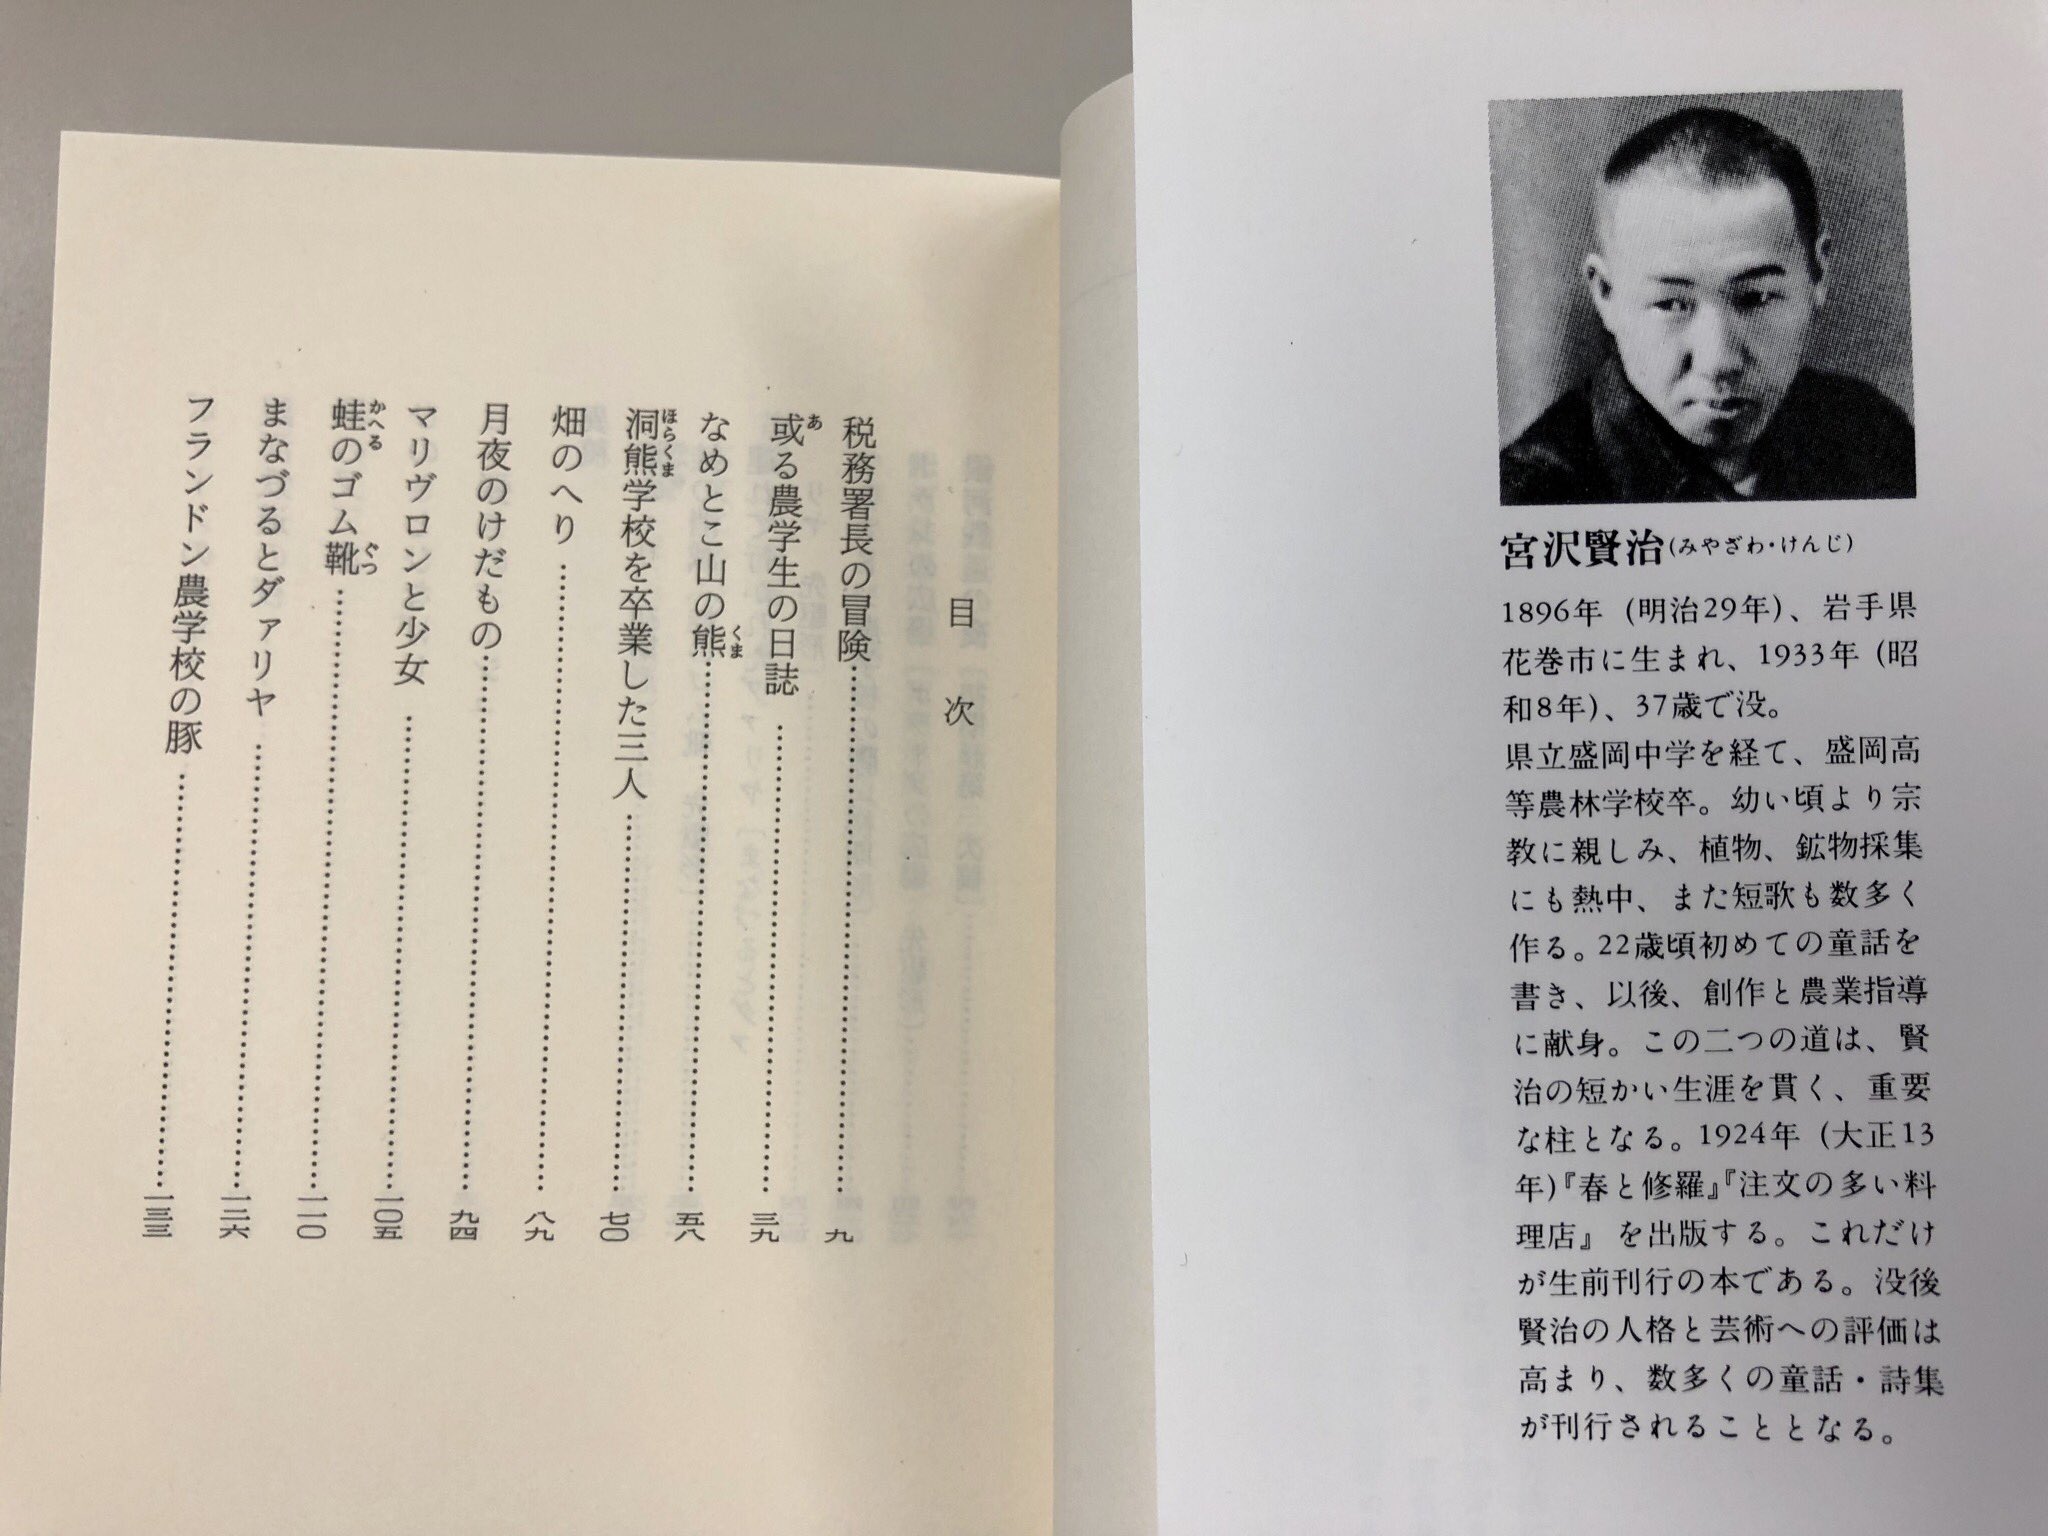 宮沢賢治(みやざわ・けんじ)
1896年 (明治29年)、岩手県
花巻市に生まれ、1933年 (昭
和8年)、37歳で没。
県立盛岡中学を経て、盛岡高
等農林学校卒。幼い頃より宗
教に親しみ、植物、鉱物採集
にも熱中、また短歌も数多く
作る。22歳頃初めての童話を
書き、以後、創作と農業指導
に献身。この二つの道は、賢
治の短かい生涯を貫く、重要
な柱となる。1924年 (大正13
年)『春と修羅』『注文の多い料
理店』を出版する。これだけ
が生前刊行の本である。没後
賢治の人格と芸術への評価は
高まり、数多くの童話・詩集
が刊行されることとなる。
目次
税務署長の冒険……九
或る農学生の日誌……三九
あ
なめとこ山の熊……五八
くま
洞熊学校を卒業した三人……七〇
ほらくま
畑のへり……八九
月夜のけだもの……九四
マリヴロンと少女……一〇五
蛙のゴム靴……一一〇
かへる ぐつ
まなづるとダァリヤ……一二六
フランドン農学校の豚……一三三